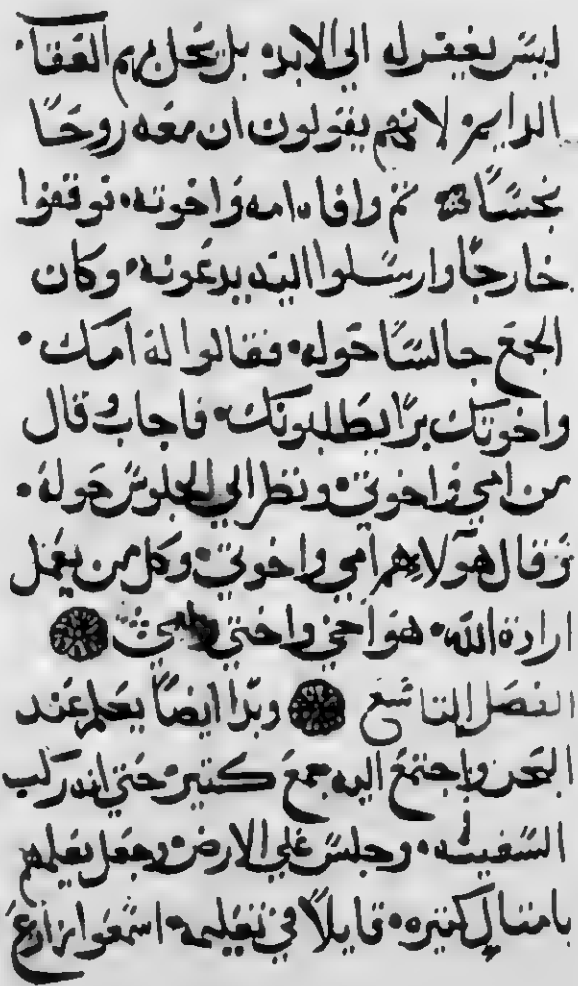 ليس يغفر له الي الابد، بل يحل بهم العقاب
الدايم، لانهم يقولون ان معه روحًا
نجسًا، ثم وافا امه واخوته، توقفوا
خارجًا وارسلوا اليه يدعونه، وكان
الجمع جالسًا حوله، فقالوا له امك،
واخوتك برًا يطلبونك، فاجاب وقال
من امي واخوتي، ونظر الي الجلوس حوله،
وقال هولاء هم امي واخوتي، وكل من يعمل
ارادة الله، هو اخي واختي وامي
الفصل التاسع وبدا ايضًا يعلم عند
البحر، واجتمع اليه جمع كتير، حتي انه ركب
السفينه، وجلس علي الارض، وجعل يعلمهم
بامتال كتيره، قايلًا في تعليمه، اسمعوا زارع